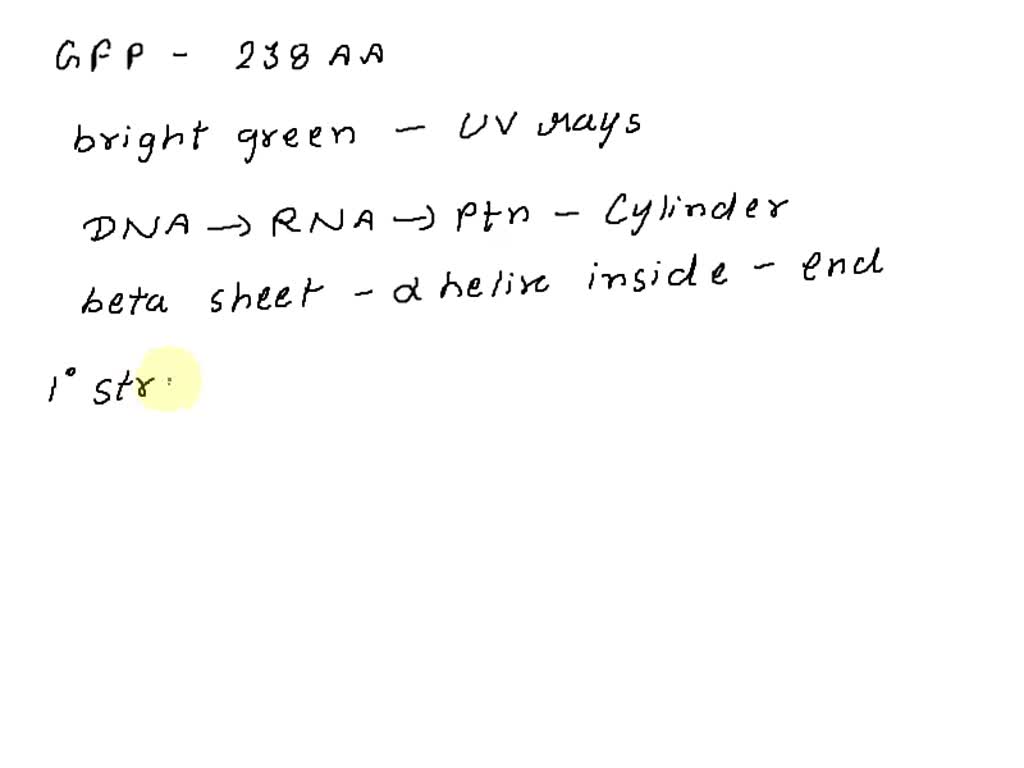 GFP - 238 AA
bright green - UV rays
DNA → RNA → Ptn - Cylinder
beta sheet - α helix inside - end
1° str